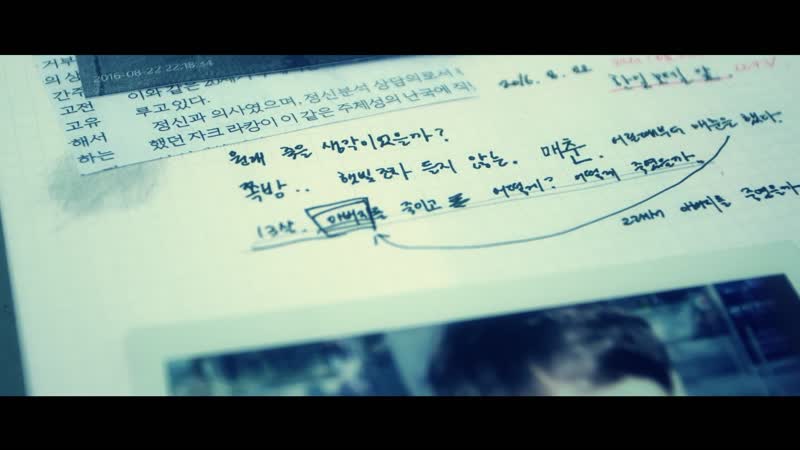 거부
의 상
간주
고전
고유
해서
하는
2016-08-22 22:18:44
이와 같은 20세기
루고 있다.
정신과 의사였으며, 정신분석 상담의로서
했던 자크 라캉이 이 같은 주체성의 난국에 직
2016. 8. 22
원래 죽을 생각이었을까?
쪽방.. 햇빛조차 들지 않는. 매춘. 어릴때부터 매춘을 했다.
13살. 아버지를 죽이고 어떻게? 어떻게 죽였을까.
그래서 아버지를 죽였을까